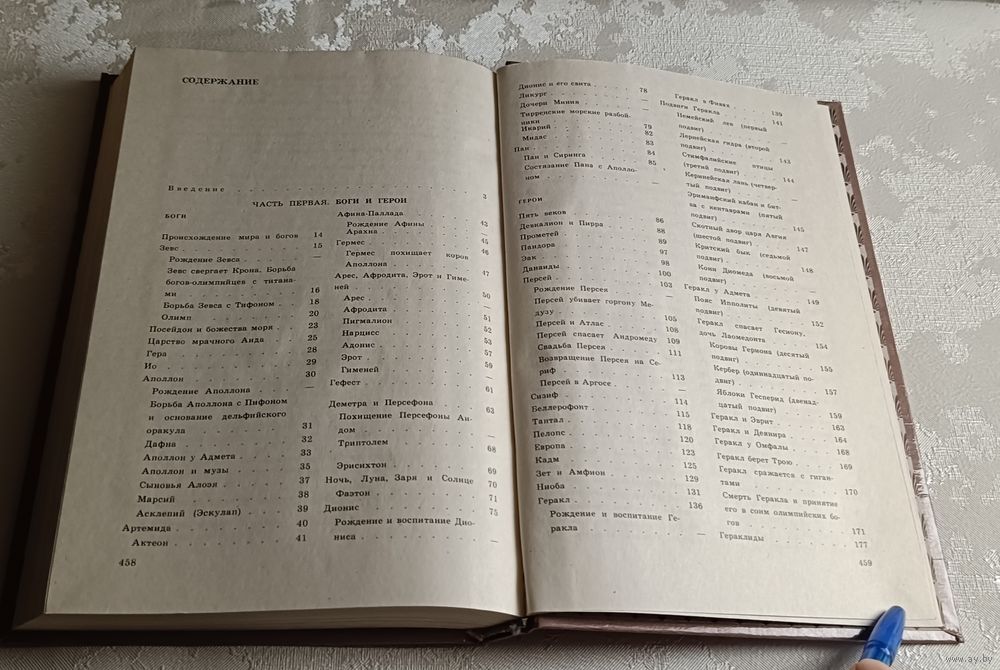 СОДЕРЖАНИЕ
Введение 3
ЧАСТЬ ПЕРВАЯ. БОГИ И ГЕРОИ
БОГИ
Происхождение мира и богов 14
Зевс 15
Рождение Зевса —
Зевс свергает Крона. Борьба
богов-олимпийцев с титана-
ми 16
Борьба Зевса с Тифоном 18
Олимп 20
Посейдон и божества моря 23
Царство мрачного Аида 25
Гера 28
Ио 29
Аполлон 30
Рождение Аполлона —
Борьба Аполлона с Пифоном
и основание дельфийского
оракула 31
Дафна 32
Аполлон у Адмета 33
Аполлон и музы 35
Сыновья Алоэя 37
Марсий 38
Асклепий (Эскулап) 39
Артемида 40
Актеон 41
458
Афина-Паллада 43
Рождение Афины —
Арахна 45
Гермес 46
Гермес похищает коров
Аполлона 47
Арес, Афродита, Эрот и Гиме-
ней 50
Арес
Афродита 51
Пигмалион 52
Нарцисс 53
Адонис 57
Эрот 59
Гименей —
Гефест 61
Деметра и Персефона 63
Похищение Персефоны Аи-
дом —
Триптолем 68
Эрисихтон 69
Ночь, Луна, Заря и Солнце 70
Фаэтон 71
Дионис 75
Рождение и воспитание Дио-
ниса —
Дионис и его свита 78
Ликург —
Дочери Миния —
Тирренские морские разбой-
ники 79
Икарий 82
Мидас 83
Пан 84
Пан и Сиринга 85
Состязание Пана с Аполло-
ном —
ГЕРОИ
Пять веков 86
Девкалион и Пирра 88
Прометей 89
Пандора 97
Эак 98
Данаиды 100
Персей 103
Рождение Персея —
Персей убивает горгону Ме-
дузу 105
Персей и Атлас 108
Персей спасает Андромеду 109
Свадьба Персея 111
Возвращение Персея на Се-
риф 113
Персей в Аргосе —
Сизиф 114
Беллерофонт 115
Тантал 118
Пелопс 120
Европа 123
Кадм 125
Зет и Амфион 129
Ниоба 131
Геракл 136
Рождение и воспитание Ге-
ракла —
Геракл в Фивах 139
Подвиги Геракла 141
Немейский лев (первый
подвиг) —
Лернейская гидра (второй
подвиг) 143
Стимфалийские птицы
(третий подвиг) 144
Керинейская лань (четвер-
тый подвиг) —
Эриманфский кабан и бит-
ва с кентаврами (пятый
подвиг) 145
Скотный двор царя Авгия
(шестой подвиг) 147
Критский бык (седьмой
подвиг) 148
Кони Диомеда (восьмой
подвиг) —
Геракл у Адмета 149
Пояс Ипполиты (девятый
подвиг) 152
Геракл спасает Гесиону,
дочь Лаомедонта 154
Коровы Гериона (десятый
подвиг) 155
Кербер (одиннадцатый по-
двиг) 157
Яблоки Гесперид (двенад-
цатый подвиг) 159
Геракл и Эврит 163
Геракл и Деянира 164
Геракл у Омфалы 168
Геракл берет Трою 169
Геракл сражается с гиган-
тами 170
Смерть Геракла и принятие
его в сонм олимпийских бо-
гов 171
Гераклиды 177
459
www.ay.by